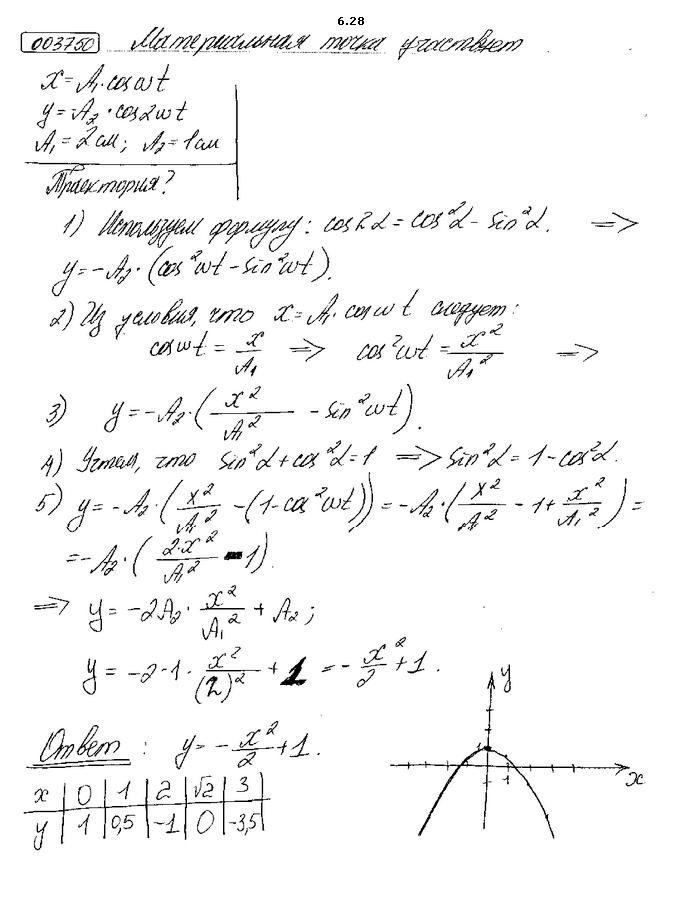 6.28
003750 Материальная точка участвует
x = A₁·cosωt
y = -A₂·cos2ωt
A₁ = 2см; A₂ = 1см
Траектория?
1) Используем формулу: cos2α = cos²α - sin²α. =>
y = -A₂·(cos²ωt - sin²ωt).
2) Из условия, что x = A₁·cosωt следует:
cosωt = x/A₁ => cos²ωt = x²/A₁² =>
3) y = -A₂·(x²/A₁² - sin²ωt).
4) Учтем, что sin²α + cos²α = 1 => sin²α = 1 - cos²α.
5) y = -A₂·(x²/A₁² - (1 - cos²ωt)) = -A₂·(x²/A₁² - 1 + x²/A₁²) =
= -A₂·(2·x²/A₁² - 1).
=> y = -2A₂·x²/A₁² + A₂;
y = -2·1·x²/(2)² + 1 = -x²/2 + 1.
y
Ответ: y = -x²/2 + 1.
1
x
1
x | 0 | 1 | 2 | √2 | 3
y | 1 | 0,5 | -1 | 0 | -3,5